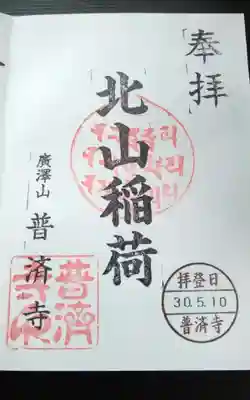 奉拝
北山稲荷
廣澤山 普済寺
拝登日
30.5.10
普済寺